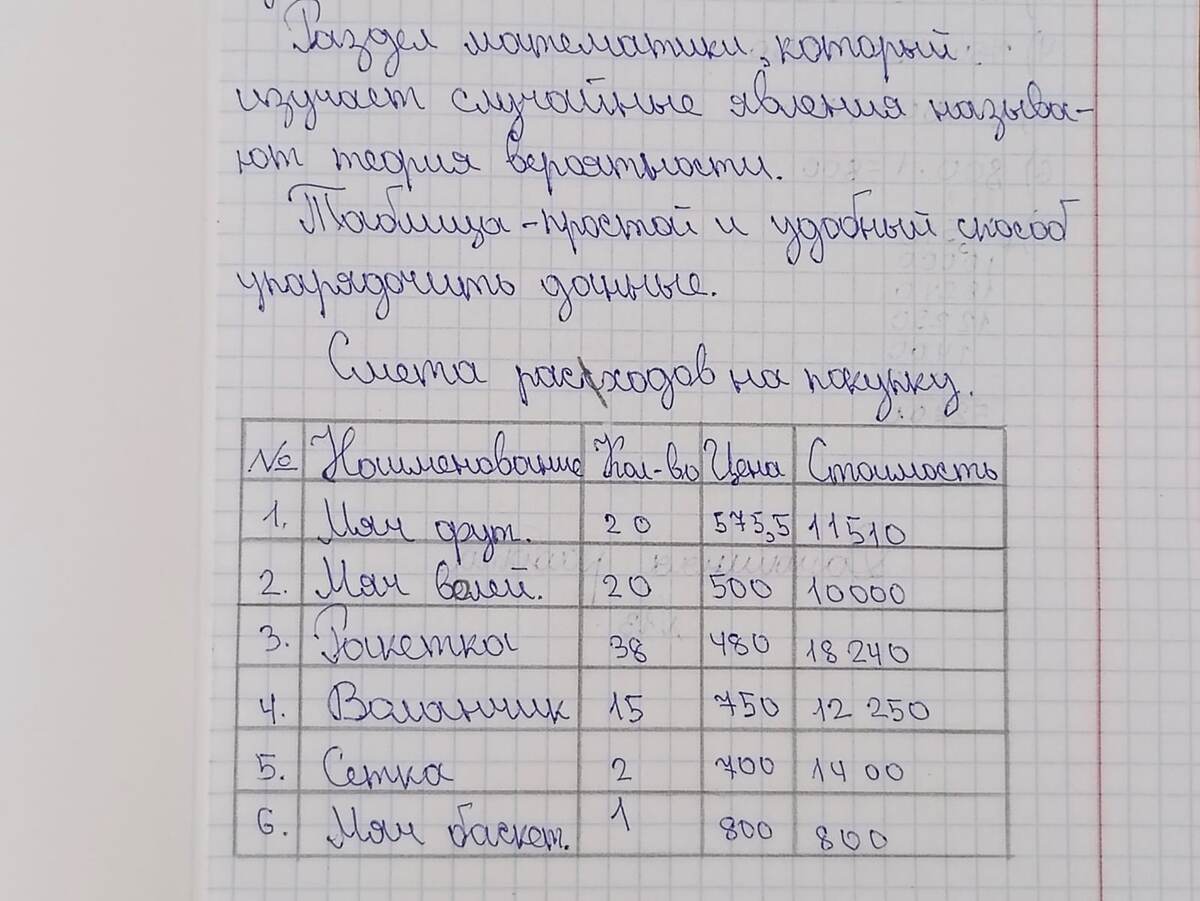 Раздел математики, который
изучает случайные явления называ-
ют теория вероятности.
Таблица - простой и удобный способ
упорядочить данные.
Смета расходов на покупку.
№ Наименование Кол-во Цена Стоимость
1. Мяч фут. 20 575,5 11510
2. Мяч волей. 20 500 10000
3. Ракетка 38 480 18240
4. Воланчик 15 750 12 250
5. Сетка 2 700 1400
6. Мяч баскет. 1 800 800